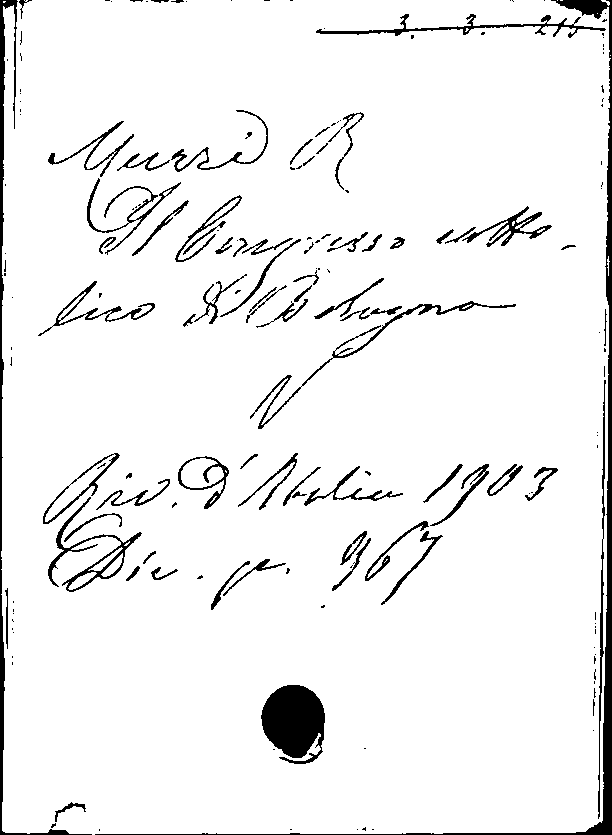 3. 3. 216
Murri R
Il Congresso catto-
lico di Bologna
V
Riv. d'Italia 1903
Dic. p. 967